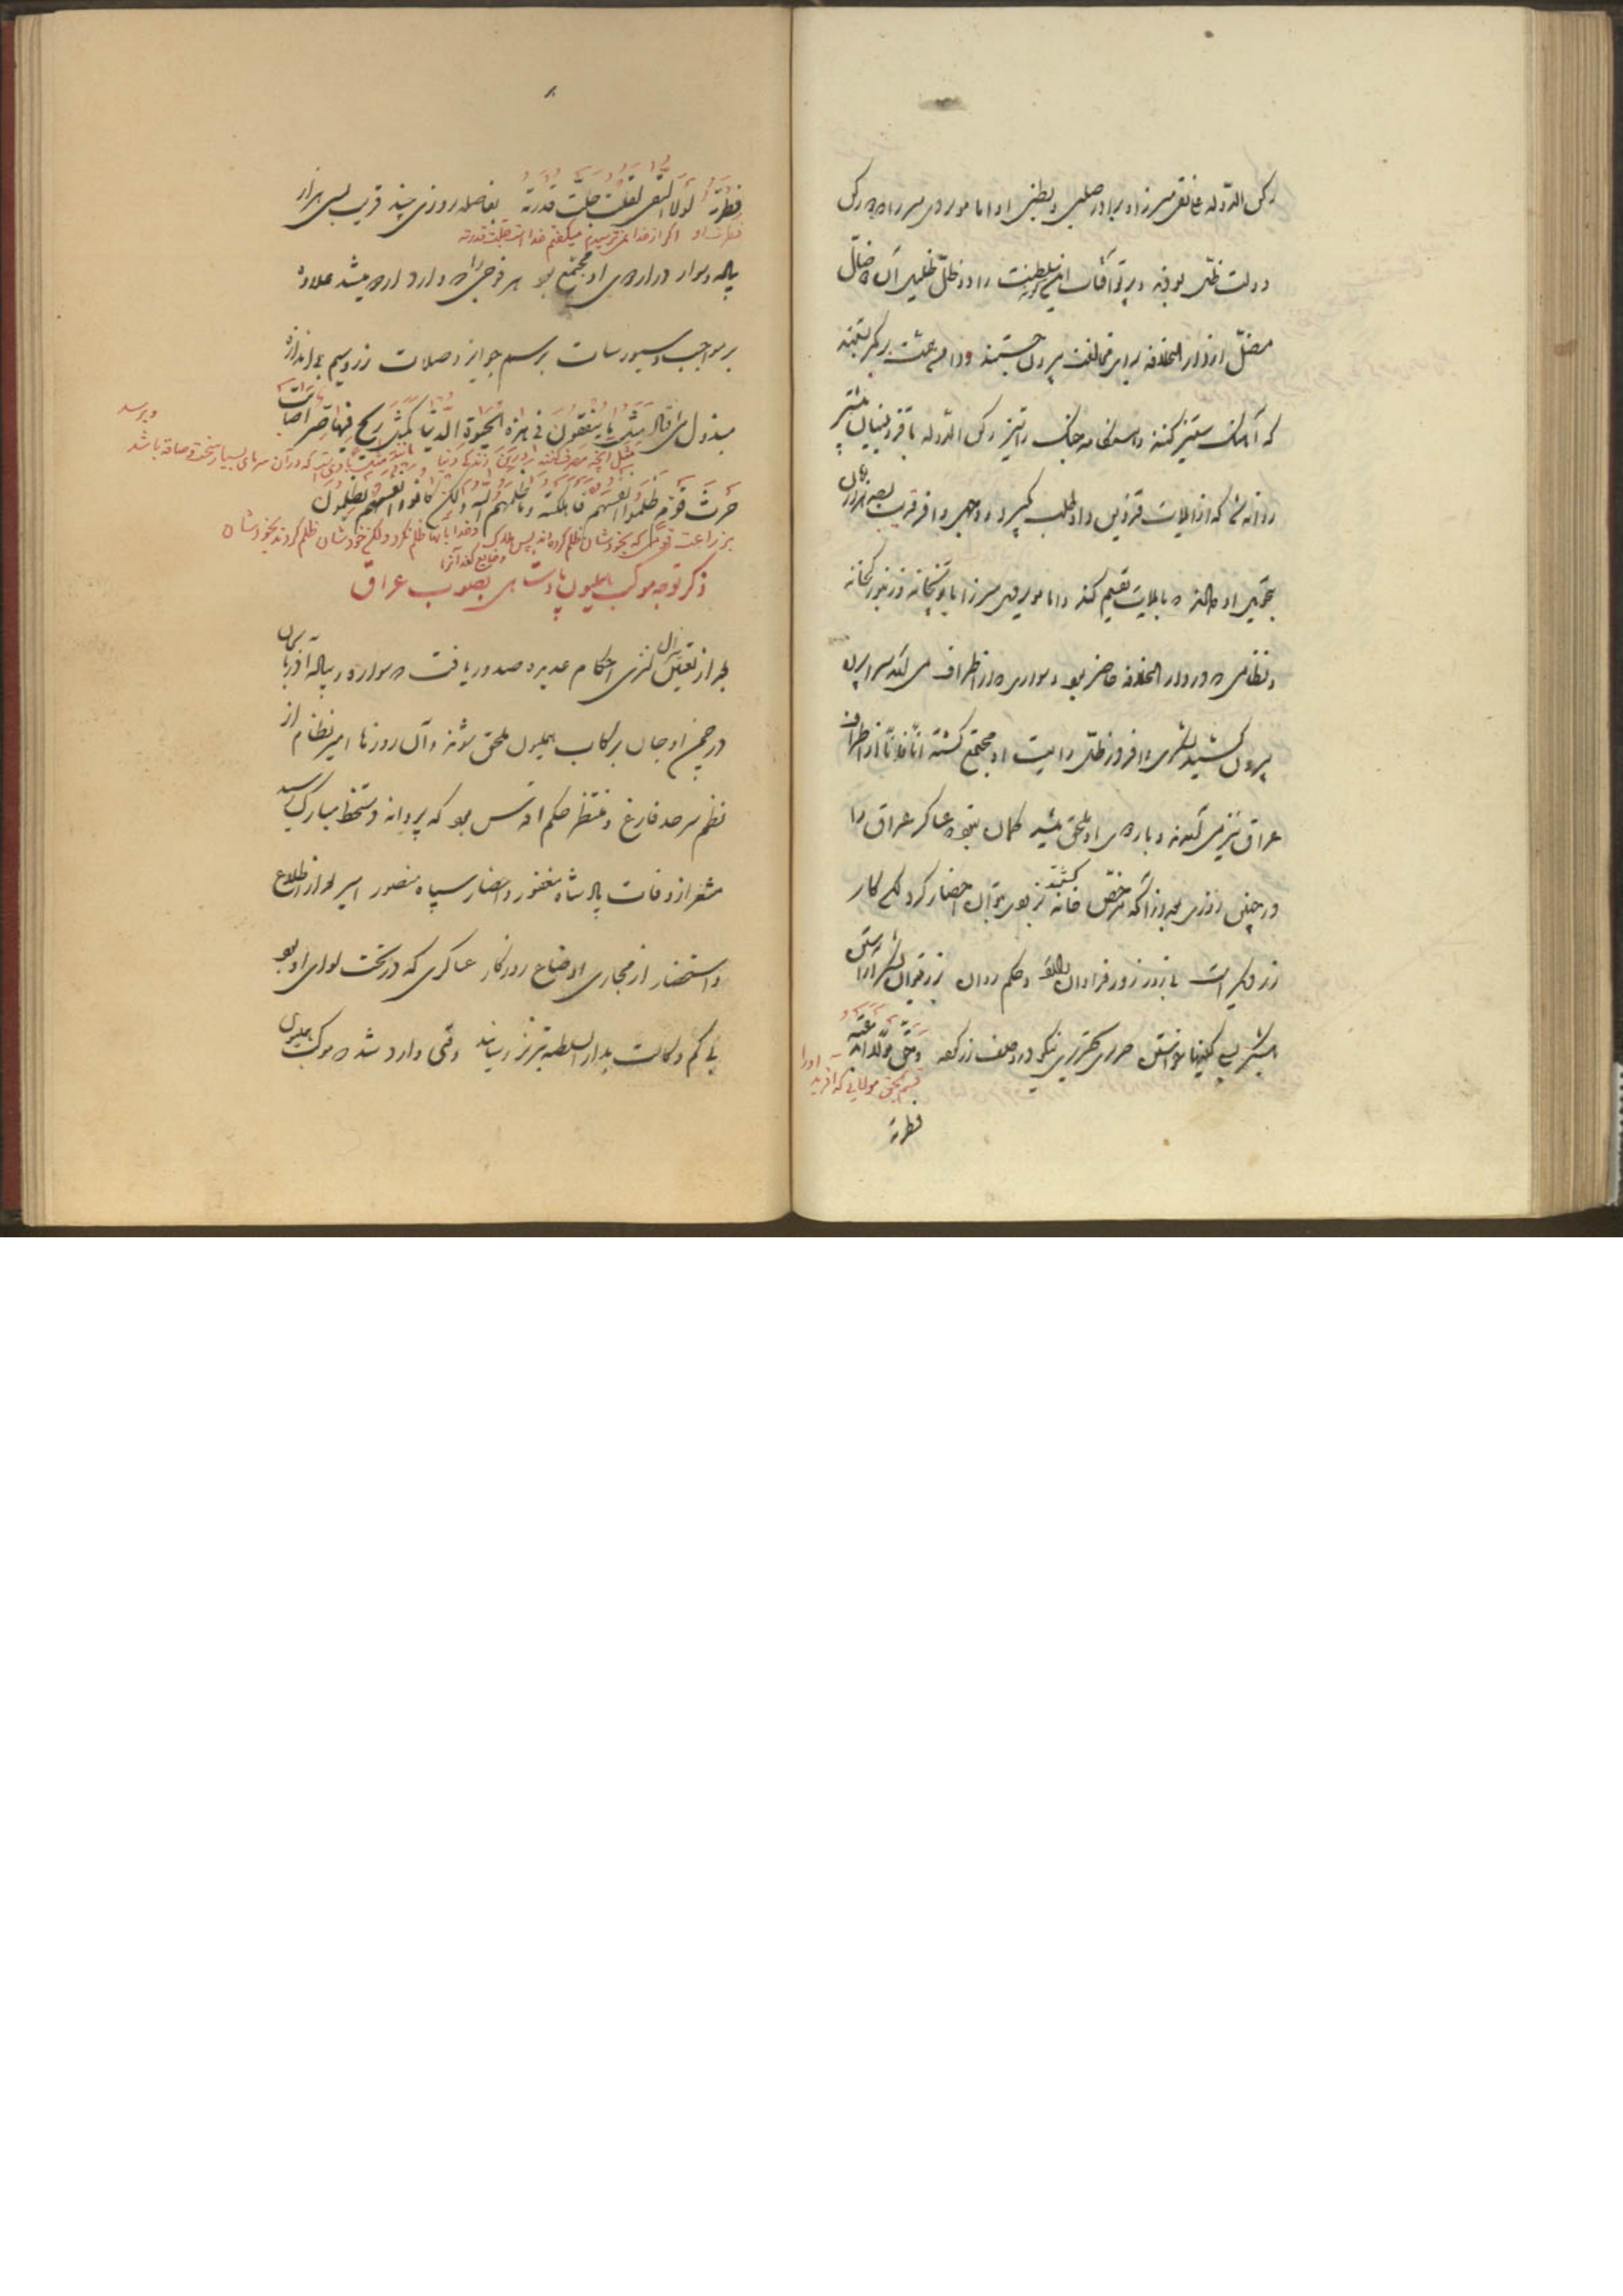 رکن الدّوله علینقی میرزا و برادر صلبی و بطنی او امام ویردی میرزا که رکن
دولت ظلّی بودند و پرتو آفتاب سلطنت را در ظلّ ظلیل آن ضالّ
مضلّ از دار الخلافه برای مخالفت بیرون جستند و دامن همت بر کمر بستند
که آهنگ ستیز کنند و هنگامه جنگ را تیز رکن الدّوله با قزوینیان پیشتر
روانه شد که از ایلات قزوین داوطلب گیرد و وجهی وافر قریب بصد هزار تومان
تحویل او کردند که بایلات تقسیم کند و امام ویردی میرزا با توپخانه و زنبورکخانه
و نظامی که در دار الخلافه حاضر بود و سواری که از اطراف می آمد سراپرده
بیرون کشید لشکری وافر در ظلّ رایت او مجتمع گشته آناً فآناً از اطراف
عراق نیز می آمدند و باردوی او ملحق میشد گمان نبود عساکر عراق را
در چنین روزی بعد از آنکه مرخّص خانه گشتند بزودی بتوان احضار کرد لکن کار
زر دیگر است با زور زر فراوان و حکم روان زر بتوان لشکر آراستن
لشکر بی گنج نتوان خواستن حریری تحریری نیکو در وصف زر کرده وحقّ مولی ابدعته
قسم بحق مولایی که آفرید اورا
فطرته
۸
فطرته لولا التقی لقلت جلّت قدرته بفاصله روزی چند قریب بسی هزار
فطرت او اگر از خدا نمی ترسیدم میگفتم خداست جلّت قدرته
پیاده و سوار در اردوی او مجتمع بود هر فوجی را که وارد اردو میشد علاوه
بر مواجب و سیورسات برسم جوایز و صلات زر و سیم بی اندازه
مبذول می افتاد مثل ما ینفقون فی هذه الحیوة الدّنیا کمثل ریح فیها صرّ اصابت
مثل آنچه صرف میکنند در این زندگی دنیا مانند مثل بادی است که در آن سرمای بسیار سخت و صاقه باشد
و برسد
حرث قوم ظلموا انفسهم فاهلکته وما ظلمهم الله ولکن کانوا انفسهم یظلمون
بزراعت قومی که بخودشان ظلم کرده اند پس هلاک و ضایع کند آنرا و خدا بآنها ظلم نکرد و لکن خودشان ظلم کردند بخودشان
ذکر توجه موکب همایون پادشاهی بصوب عراق
بعد از تعیین منزل لشکری احکام عدیده صدور یافت که سواره و پیاده آذربایجان
در چمن اوجان برکاب همایون ملحق شوند و آن روزها امیر نظام از
نظم سرحد فارغ و منتظر حکم اقدس بود که پروانه دستخط مبارک رسید
مشعر از وفات پادشاه مغفور و احضار سپاه منصور امیر بعد از اطلاع
و استحضار از مجاری اوضاع روزگار عساکری که در تحت لوای او بود
بی کم و کاست بدار السلطنه تبریز رسانید وقتی وارد شد که موکب همایون